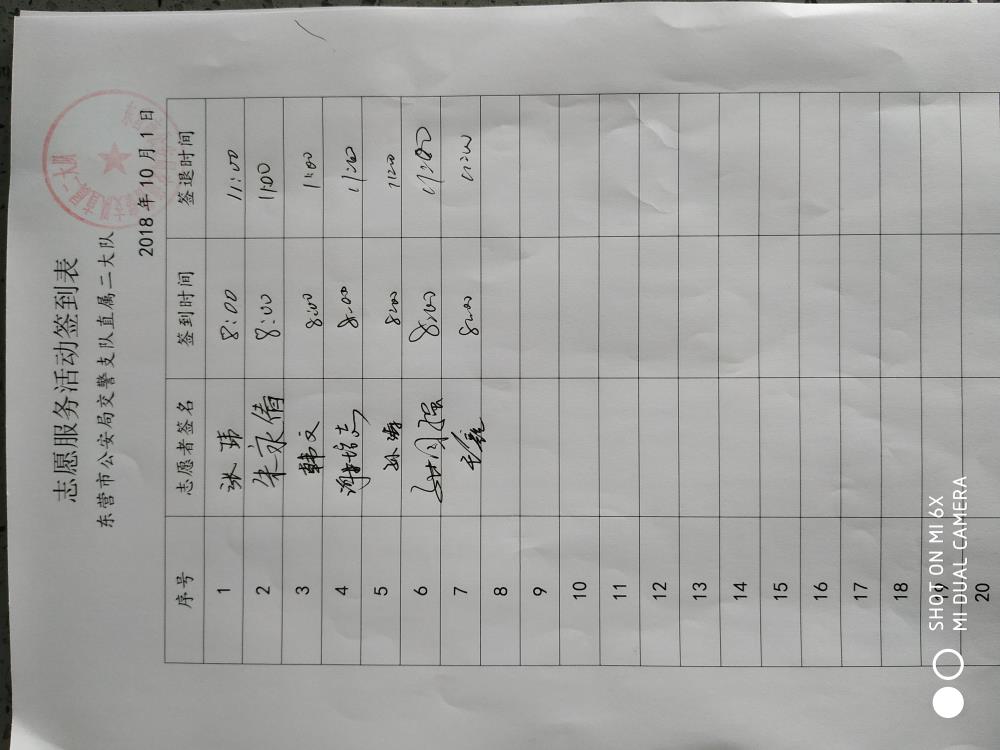 志愿服务活动签到表
东营市公安局交警支队直属二大队
2018年10月1日
序号 志愿者签名 签到时间 签退时间
1 张玮 8:00 11:00
2 朱永倩 8:00 11:00
3 韩文 8:00 11:00
4 8:00 11:00
5 8:00 11:00
6 8:00 11:00
7 8:00 11:00
8
9
10
11
12
13
14
15
16
17
18
19
20
SHOT ON MI 6X
MI DUAL CAMERA